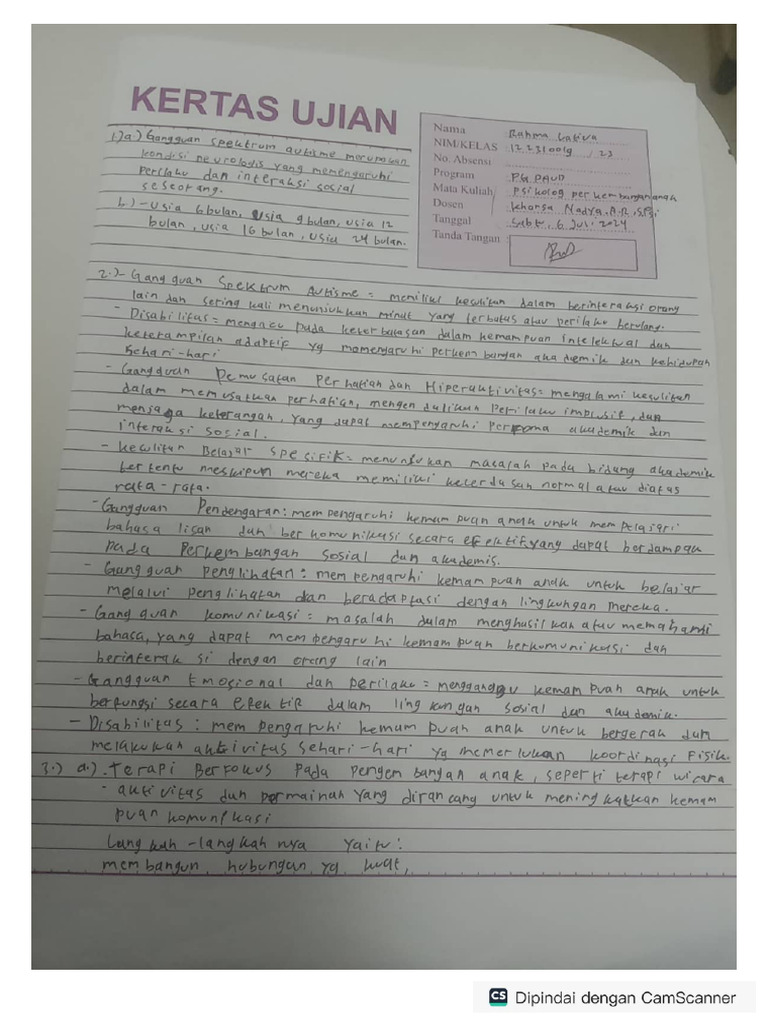 KERTAS UJIAN
Nama Rahma Lativa
NIM/KELAS / 23
No. Absensi
Program PG PAUD
Mata Kuliah Psikolog perkembangan anak
Dosen Nadya
Tanggal Sabtu, 6 Juli 2024
Tanda Tangan
1.) a.) Gangguan spektrum autisme merupakan
kondisi neurologis yang memengaruhi
perilaku dan interaksi sosial
seseorang.
b.) - Usia 6 bulan, usia 9 bulan, usia 12
bulan, usia 16 bulan, usia 24 bulan.
2.) - Gangguan Spektrum Autisme = memiliki kesulitan dalam berinteraksi orang
lain dan sering kali menunjukkan minat yang terbatas atau perilaku berulang.
- Disabilitas = mengacu pada keterbatasan dalam kemampuan intelektual dan
keterampilan adaptif yg memengaruhi perkembangan akademik dan kehidupan
sehari-hari
- Gangguan Pemusatan Perhatian dan Hiperaktivitas = mengalami kesulitan
dalam memusatkan perhatian, mengendalikan perilaku impulsif, dan
menjaga keterangan, yang dapat mempengaruhi performa akademik dan
interaksi sosial.
- Kesulitan Belajar Spesifik = menunjukan masalah pada bidang akademik
tertentu meskipun mereka memiliki kecerdasan normal atau diatas
rata-rata.
- Gangguan Pendengaran : mempengaruhi kemampuan anak untuk mempelajari
bahasa lisan dan berkomunikasi secara efektif yang dapat berdampak
pada perkembangan sosial dan akademis.
- Gangguan penglihatan : mempengaruhi kemampuan anak untuk belajar
melalui penglihatan dan beradaptasi dengan lingkungan mereka.
- Gangguan komunikasi = masalah dalam menghasilkan atau memahami
bahasa, yang dapat mempengaruhi kemampuan berkomunikasi dan
berinteraksi dengan orang lain
- Gangguan Emosional dan perilaku = mengganggu kemampuan anak untuk
berfungsi secara efektif dalam lingkungan sosial dan akademik.
- Disabilitas : mempengaruhi kemampuan anak untuk bergerak dan
melakukan aktivitas sehari-hari yg memerlukan koordinasi fisik.
3.) a.). Terapi berfokus pada pengembangan anak, seperti terapi wicara
- aktivitas dan permainan yang dirancang untuk meningkatkan kemam
puan komunikasi
Langkah-langkahnya yaitu :
membangun hubungan yg kuat,
CS Dipindai dengan CamScanner